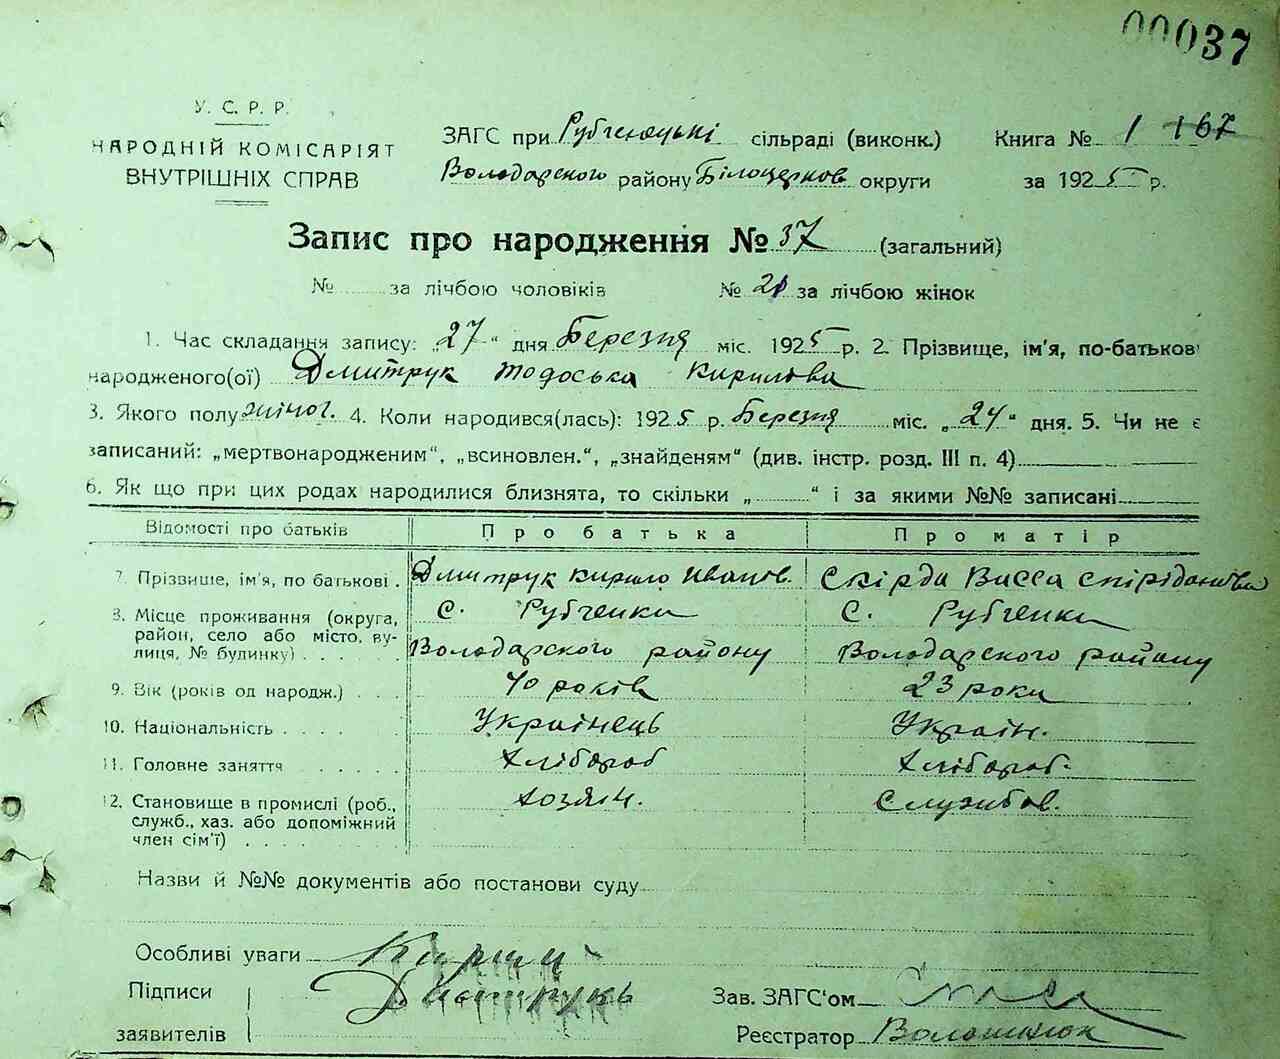 00037
У. С. Р. Р.
НАРОДНІЙ КОМІСАРІЯТ
ВНУТРІШНІХ СПРАВ
ЗАГС при Рубченецькі сільраді (виконк.) Книга № 1 167
Володарского району Білоцерков округи за 1925 р.
Запис про народження № 37 (загальний)
№ за лічбою чоловіків № 21 за лічбою жінок
1. Час складання запису: „27“ дня Березня міс. 1925 р. 2. Прізвище, ім'я, по-батьков
народженого(ої) Дмитрук Тодоська Кирилова
3. Якого полу жіног. 4. Коли народився(лась): 1925 р. Березня міс. „24“ дня. 5. Чи не є
записаний: „мертвонародженим“, „всиновлен.“, „знайденям“ (див. інстр. розд. III п. 4)
6. Як що при цих родах народилися близнята, то скільки „ “ і за якими №№ записані
Відомості про батьків Про батька Про матір
7. Прізвише, ім'я, по батькові . Дмитрук Кирило Иванов. Скірда Васса Спірідановна
8. Місце проживання (округа, район, село або місто, вулиця, № будинку) . . . . . с. Рубченки с. Рубченки
Володарского району Володарского району
9. Вік (років од народж.) . . . 40 років 23 роки
10. Національність . . . . Українець Україн.
11. Головне заняття . . . . . Хлібороб Хлібороб.
12. Становище в промислі (роб., хозяін. Службов.
служб., хаз. або допоміжний
член сім'ї) . . . .
Назви й №№ документів або постанови суду
Особливі уваги Кирил
Підписи Дмитрукъ Зав. ЗАГС'ом
заявителів Реєстратор Волошинюк